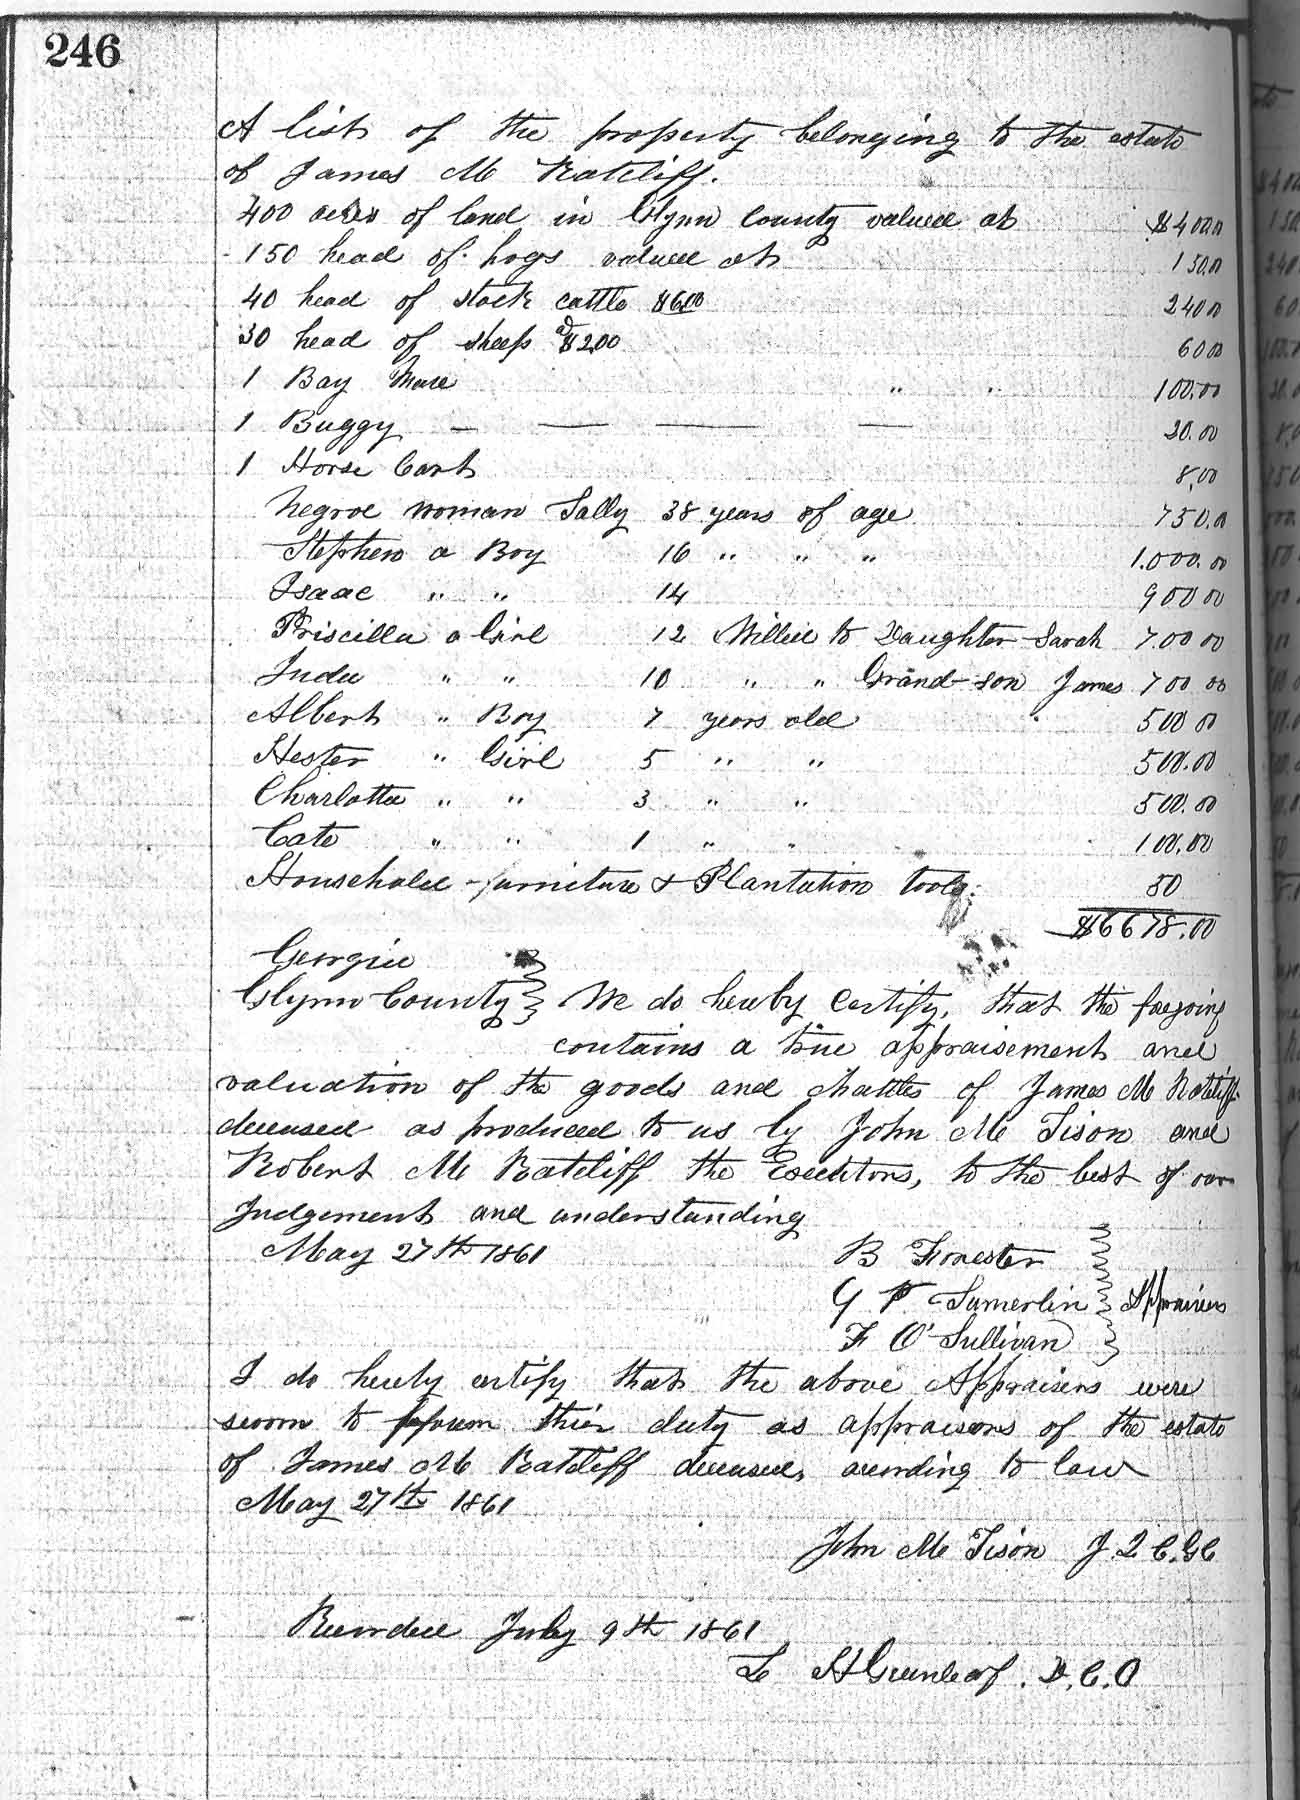 246
A list of the property belonging to the estate
of James M Ratcliff.
400 acres of land in Glynn County valued at $400.00
150 head of hogs valued at 150.00
40 head of stock cattle $6.00 240 00
30 head of sheep @ $2.00 60 00
1 Bay Mare " " 100.00
1 Buggy — — — — 20.00
1 Horse Cart 8,00
Negroe woman Sally 38 years of age 750.00
Stephen a Boy 16 " " " 1.000.00
Isaac " " 14 900 00
Priscilla a Girl 12 Willed to Daughter Sarah 7.00 00
Judee " " 10 " " Grand-son James 700 00
Albert " Boy 7 years old 500 00
Hester " Girl 5 " " 500.00
Charlotte " " 3 " " 500.00
Cate " " 1 " " 100.00
Household furniture & Plantation tools. 50
$6678.00
Georgia
Glynn County We do hereby certify, that the foregoing
contains a true appraisement and
valuation of the goods and chattles of James M Ratcliff
deceased as produced to us by John M Tison and
Robert M Ratcliff the Executors, to the best of our
Judgement and understanding
May 27th 1861 B Forrester
G P Sumerlin Appraisers
F O'Sullivan
I do hereby certify that the above Appraisers were
sworn to perform their duty as appraisers of the estate
of James M Ratcliff deceased, according to law
May 27th 1861
John M Tison J I C. G C
Recorded July 9th 1861
H Greenleaf. D. C. O